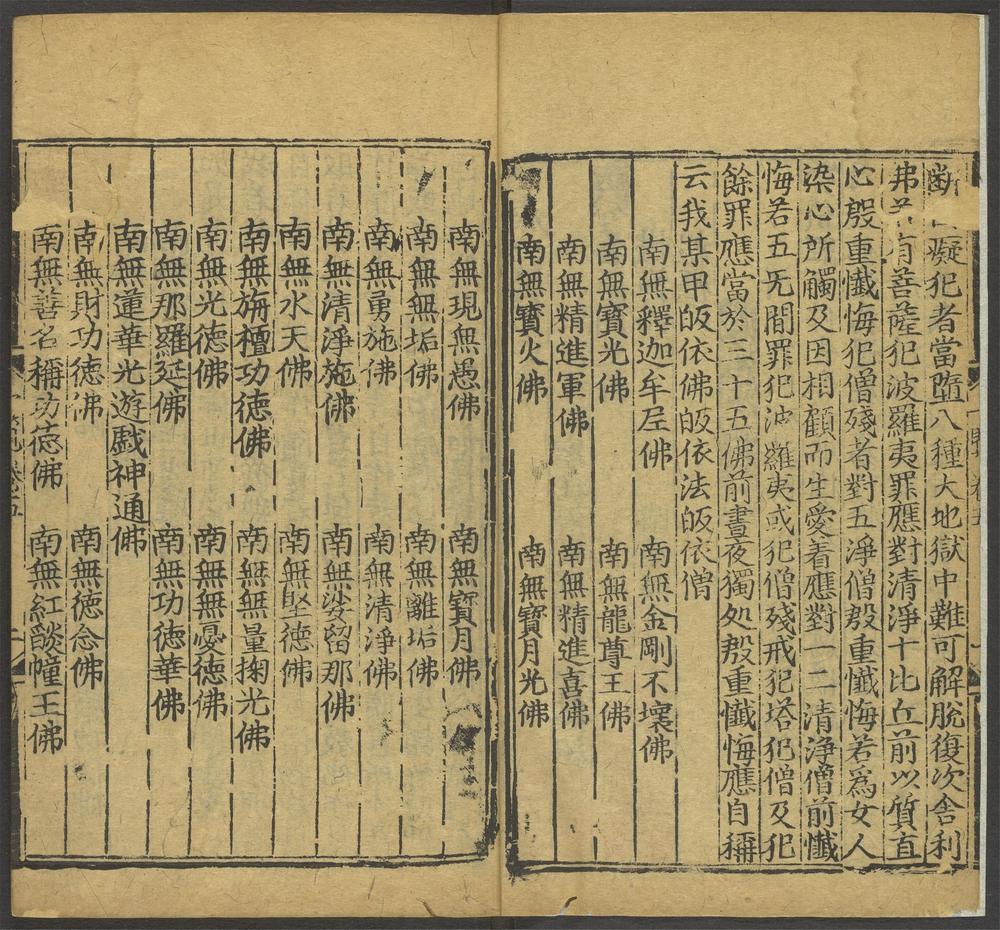 癡犯者當墮八種大地獄中難可解脫復次舍利
弗有菩薩犯波羅夷罪應對清淨十比丘前以質直
心慇重懺悔犯僧殘者對五淨僧慇重懺悔若為女人
染心所觸及因相顧而生愛着應對一二清淨僧前懺
悔若五无間罪犯波羅夷或犯僧殘戒犯塔犯僧及犯
餘罪應當於三十五佛前晝夜獨処慇重懺悔應自稱
云我某甲皈依佛皈依法皈依僧
南無釋迦牟尼佛 南無金剛不壞佛
南無寶光佛 南無龍尊王佛
南無精進軍佛 南無精進喜佛
南無寶火佛 南無寶月光佛
南無現無愚佛 南無寶月佛
南無無垢佛 南無離垢佛
南無勇施佛 南無清淨佛
南無清淨施佛 南無娑留那佛
南無水天佛 南無堅德佛
南無旃檀功德佛 南無無量掬光佛
南無光德佛 南無無憂德佛
南無那羅延佛 南無功德華佛
南無蓮華光遊戯神通佛
南無財功德佛 南無德念佛
南無善名稱功德佛 南無紅燄幢王佛